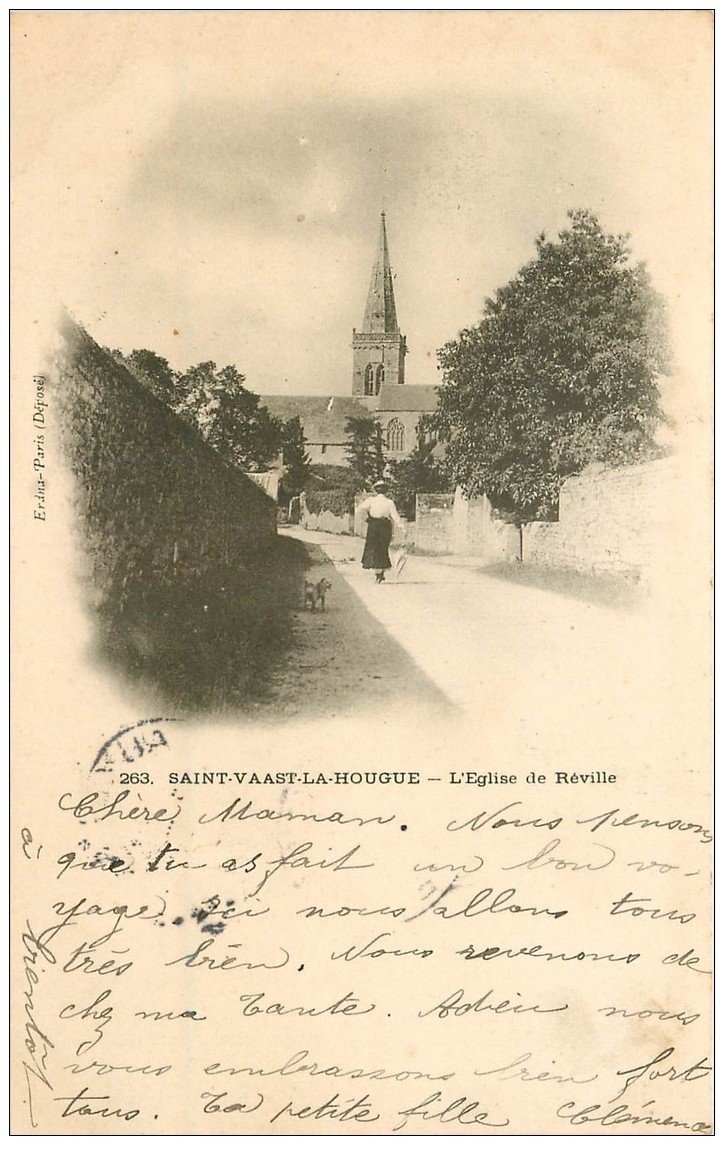 Erdna-Paris (Déposé)
263. SAINT-VAAST-LA-HOUGUE – L'Eglise de Réville
Chère Maman. Nous pensons
que tu as fait un bon vo-
yage ici nous allons tous
très bien. Nous revenons de
chez ma Tante. Adieu nous
vous embrassons bien fort
tous. Ta petite fille Clémence
à bientôt